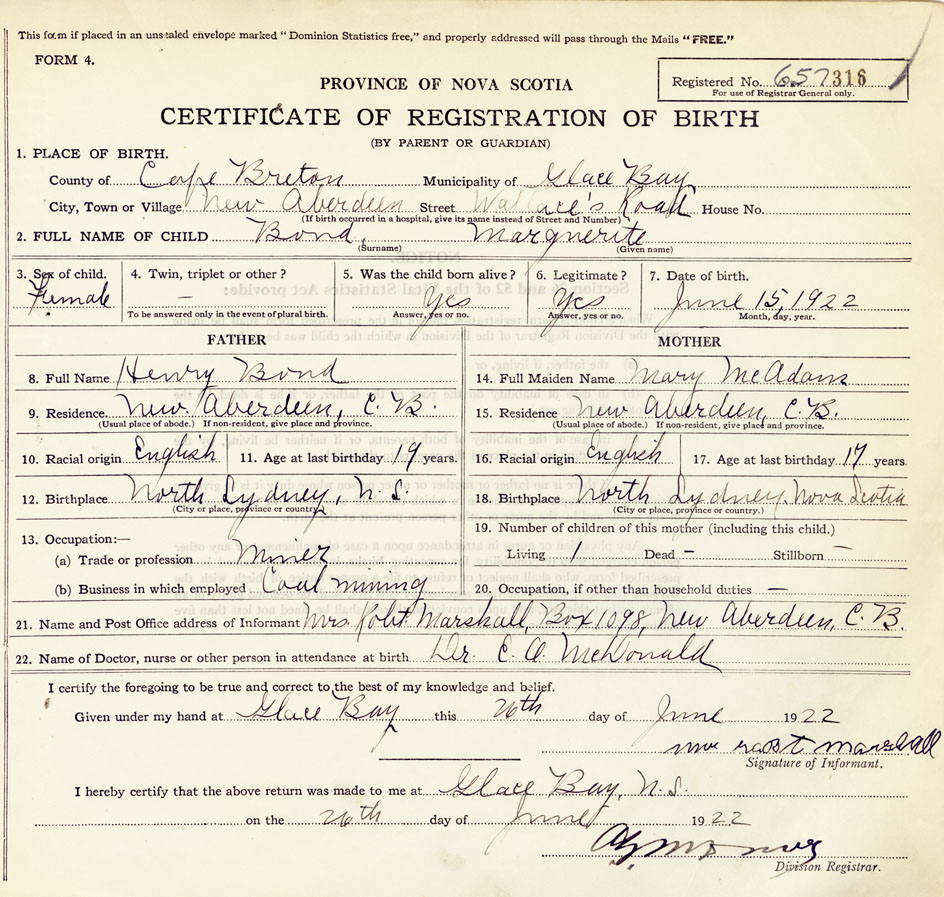 This form if placed in an unsealed envelope marked "Dominion Statistics free," and properly addressed will pass through the Mails "FREE."
FORM 4.
Registered No. 657316
For use of Registrar General only.
PROVINCE OF NOVA SCOTIA
CERTIFICATE OF REGISTRATION OF BIRTH
(BY PARENT OR GUARDIAN)
1. PLACE OF BIRTH.
County of Cape Breton Municipality of Glace Bay
City, Town or Village New Aberdeen Street Wallace's Road House No.
(If birth occurred in a hospital, give its name instead of Street and Number)
2. FULL NAME OF CHILD Bond, Marguerite
(Surname) (Given name)
3. Sex of child. 4. Twin, triplet or other? 5. Was the child born alive? 6. Legitimate? 7. Date of birth.
Female — Yes Yes June 15, 1922
To be answered only in the event of plural birth. Answer, yes or no. Answer, yes or no. Month, day, year.
FATHER MOTHER
8. Full Name Henry Bond 14. Full Maiden Name Mary McAdams
9. Residence New Aberdeen, C.B. 15. Residence New Aberdeen, C.B.
(Usual place of abode.) If non-resident, give place and province. (Usual place of abode.) If non-resident, give place and province.
10. Racial origin English 11. Age at last birthday 19 years. 16. Racial origin English 17. Age at last birthday 17 years.
12. Birthplace North Sydney, N.S. 18. Birthplace North Sydney, Nova Scotia
(City or place, province or country.) (City or place, province or country.)
13. Occupation:— 19. Number of children of this mother (including this child.)
(a) Trade or profession Miner Living 1 Dead – Stillborn –
(b) Business in which employed Coal mining 20. Occupation, if other than household duties —
21. Name and Post Office address of Informant Mrs. Robt Marshall, Box 1098, New Aberdeen, C.B.
22. Name of Doctor, nurse or other person in attendance at birth Dr. E. O. McDonald
I certify the foregoing to be true and correct to the best of my knowledge and belief.
Given under my hand at Glace Bay this 26th day of June 1922
Marshall
Signature of Informant.
I hereby certify that the above return was made to me at Glace Bay, N.S.
on the 26th day of June 1922
Division Registrar.